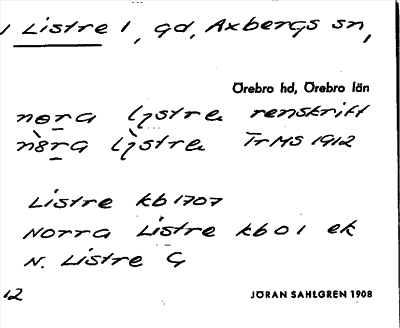 Listre 1, gd, Axbergs sn,
Örebro hd, Örebro län
nøra ljstre renskrift
nòra lj̀stre TrMS 1912
Listre kb 1707
Norra Listre kb 01 ek
N. Listre G
12
JÖRAN SAHLGREN 1908